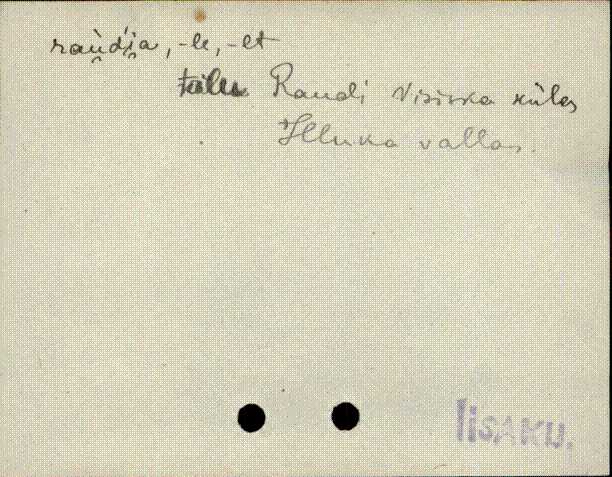 raud'ia, -le, -et
talu Raudi Visivka külas
Illuka vallas.
IISAKU.